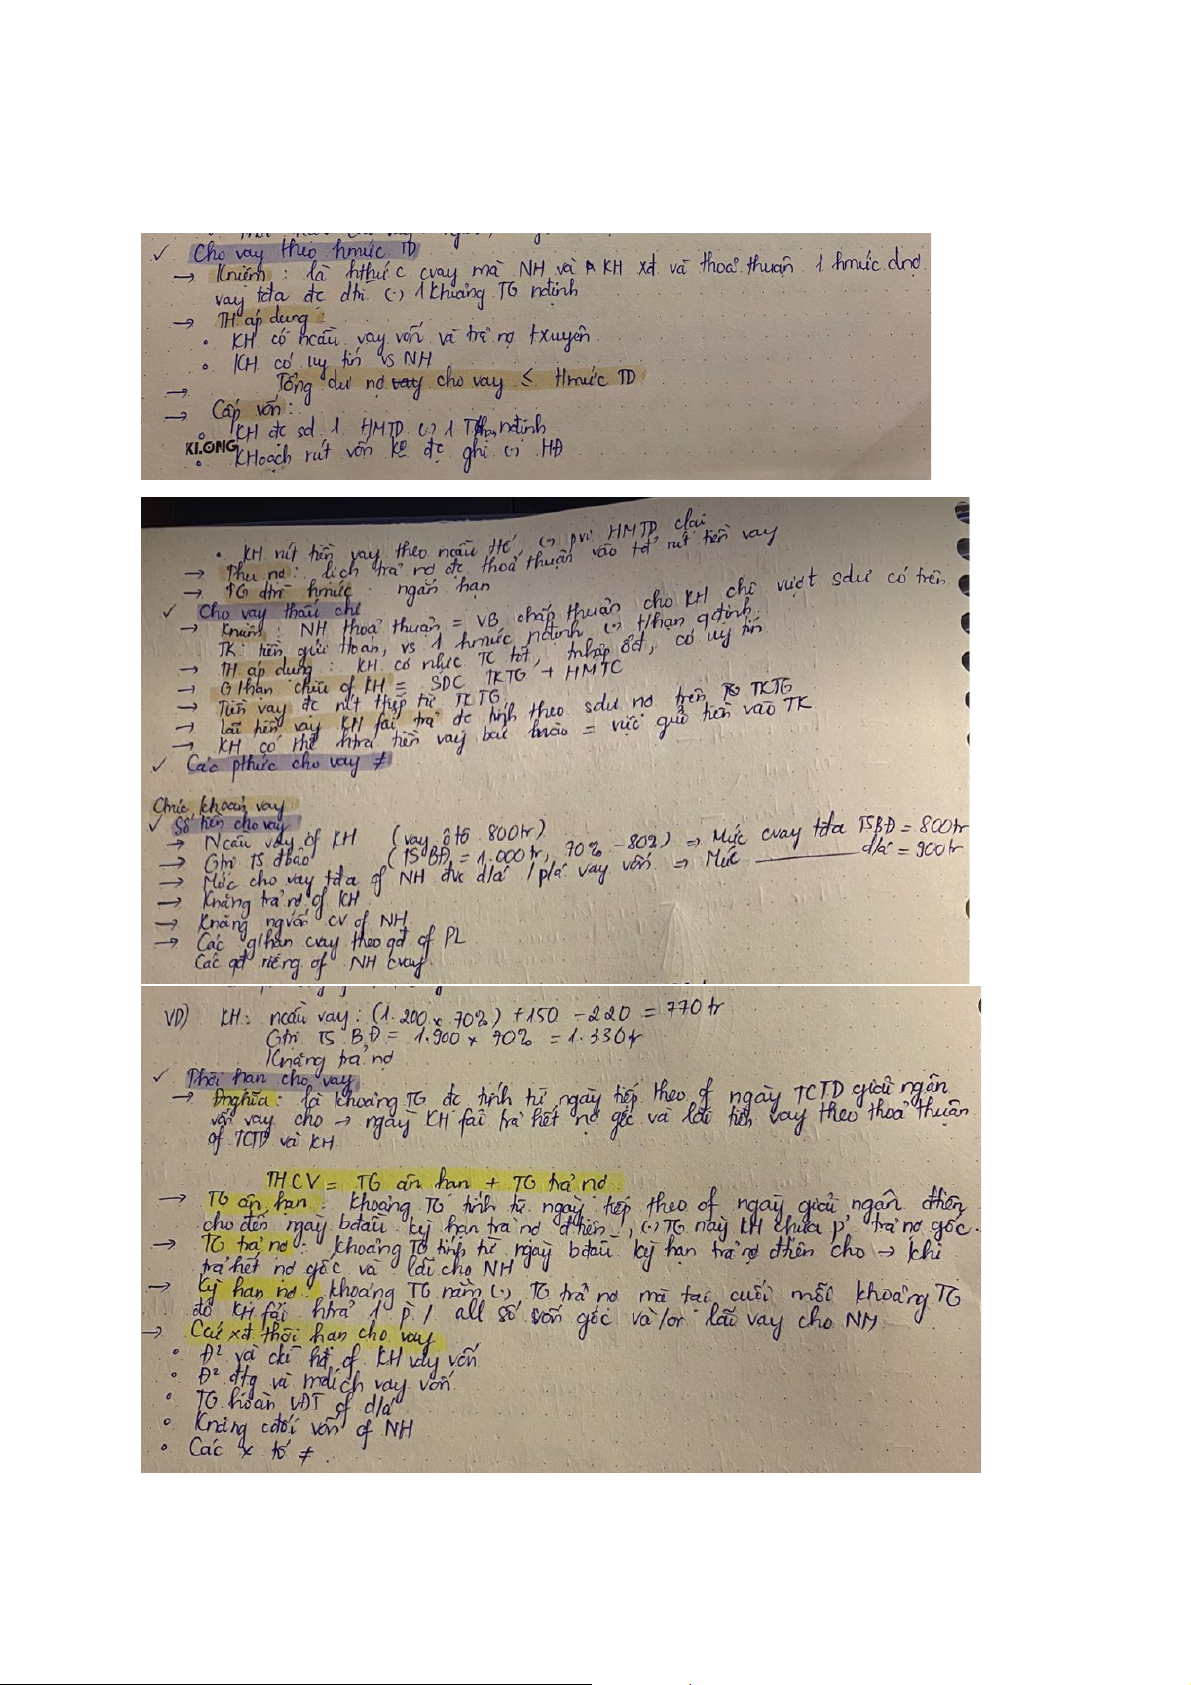 ✓ Cho vay theo hmức TD
→ Kniệm : là hthức cvay mà NH và KH xđ và thoả thuận 1 hmức dnợ
vay tđa đc dtrì (.) 1 khoảng TG nđịnh
→ TH áp dụng :
• KH có ncầu vay vốn và trả nợ txuyên
• KH có uy tín vs NH
→ Tổng dư nợ cho vay ≤ Hmức TD
→ Cấp vốn :
• KH đc sd 1 HMTD (.) 1 nđịnh
KLONG
• KHoạch rút vốn ko đc ghi (.) HĐ
• KH rút tiền vay theo ncầu (.) pvi HMTD clại
→ Thu nợ : lịch trả nợ đc thoả thuận vào tđ rút tiền vay
→ TG dtrì hmức : ngắn hạn
✓ Cho vay thấu chi
→ Kniệm : NH thoả thuận = VB chấp thuận cho KH chi vượt sdư có trên
TK tiền gửi ttoán, vs 1 hmức nđịnh (.) t/hạn qđịnh
→ TH áp dụng : KH có nlực TC tốt, tnhập ổđ, có uy tín
→ G/hạn chitiêu of KH = SDC TKTG + HMTC
→ Tiền vay đc rút ttiếp từ TKTG
→ Lãi tiền vay KH fải trả đc tính theo sdư nợ trên TKTG
→ KH có thể htrả tiền vay bất kì lúc nào = việc gửi tiền vào TK
✓ Các pthức cho vay ≠
khoản vay
✓ Số tiền cho vay
→ Ncầu vay of KH (vay ôtô 800tr)
→ Gtrị TS đbảo (TSBĐ = 1.000tr, 70% - 80%) => Mức cvay tđa TSBĐ = 800tr
→ Mức cho vay tđa of NH đvs d/á / p/á vay vốn => Mức ______ d/á = 900tr
→ Knăng trả nợ of KH
→ Knăng nguồn cv of NH
→ Các g/hạn cvay theo qđ of PL
Các qđ riêng of NH cvay
VD) KH : ncầu vay : (1.200 x 70%) + 150 - 220 = 770 tr
Gtrị TS BĐ = 1.900 x 70% = 1.330tr
Knăng trả nợ
✓ Thời hạn cho vay
→ Đnghĩa : là khoảng TG đc tính từ ngày tiếp theo of ngày TCTD giải ngân
vốn vay cho → ngày KH fải trả hết nợ gốc và lãi tiền vay theo thoả thuận
of TCTD và KH
THCV = TG ân hạn + TG trả nợ
→ TG ân hạn : khoảng TG tính từ ngày tiếp theo of ngày giải ngân đtiên
cho đến ngày bđầu kỳ hạn trả nợ đtiên, (.) TG này KH chưa p' trả nợ gốc.
→ TG trả nợ : khoảng TG tính từ ngày bđầu kỳ hạn trả nợ đtiên cho → khi
trả hết nợ gốc và lãi cho NH
→ Kỳ hạn nợ : khoảng TG nằm (.) TG trả nợ mà tại cuối mỗi khoảng TG
đó KH fải htrả 1 p / all số vốn gốc và/or lãi vay cho NH.
→ Các xđ thời hạn cho vay
• Đ² và of KH vay vốn
• Đ² đtg và mđích vay vốn
• TG hoàn VĐT of d/á
• Knăng cđối vốn of NH
• Các x tố ≠